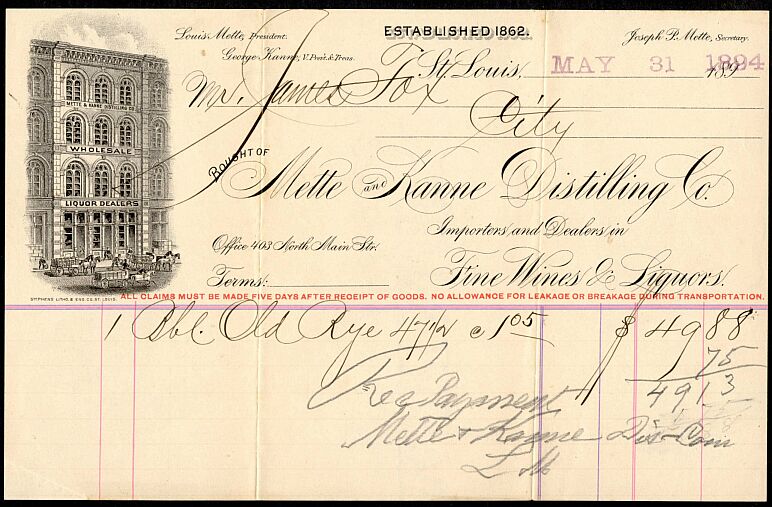 Louis Mette, President.
ESTABLISHED 1862.
Joseph P. Mette, Secretary.
George Kanne, V. Pres't. & Treas.
St. Louis, MAY 31 1894 189
Mr. James Fox
City
BOUGHT OF
Mette and Kanne Distilling Co.
METTE & KANNE DISTILLING CO.
WHOLESALE
LIQUOR DEALERS
Importers and Dealers in
Office 403 North Main Str.
Fine Wines & Liquors.
Terms:
STEPHENS LITHO. & ENG. CO. ST. LOUIS.
ALL CLAIMS MUST BE MADE FIVE DAYS AFTER RECEIPT OF GOODS. NO ALLOWANCE FOR LEAKAGE OR BREAKAGE DURING TRANSPORTATION.
1 Bbl. Old Rye 47 1/2 @ 1 05 $ 49 88
75
49 13
Rec Payment
Mette & Kanne Dis- Com
L M